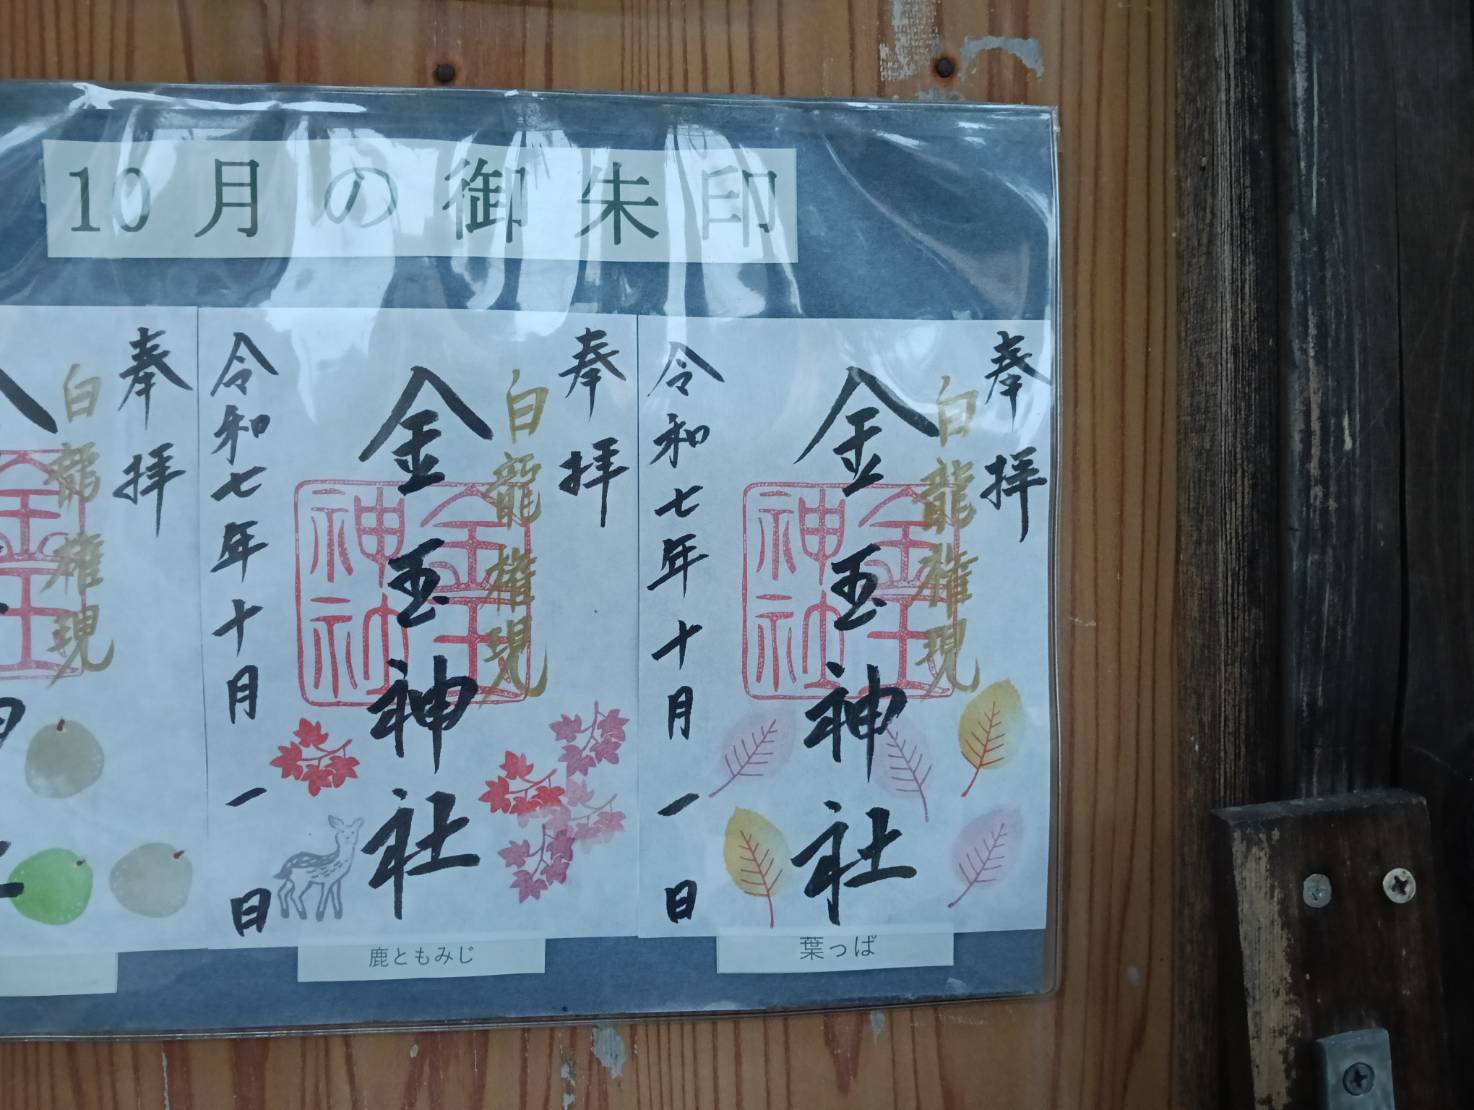 10月の御朱印
奉拝
白龍権現
金玉神社
令和七年十月一日
葉っぱ
奉拝
白龍権現
金玉神社
令和七年十月一日
鹿ともみじ
奉拝
白龍権現